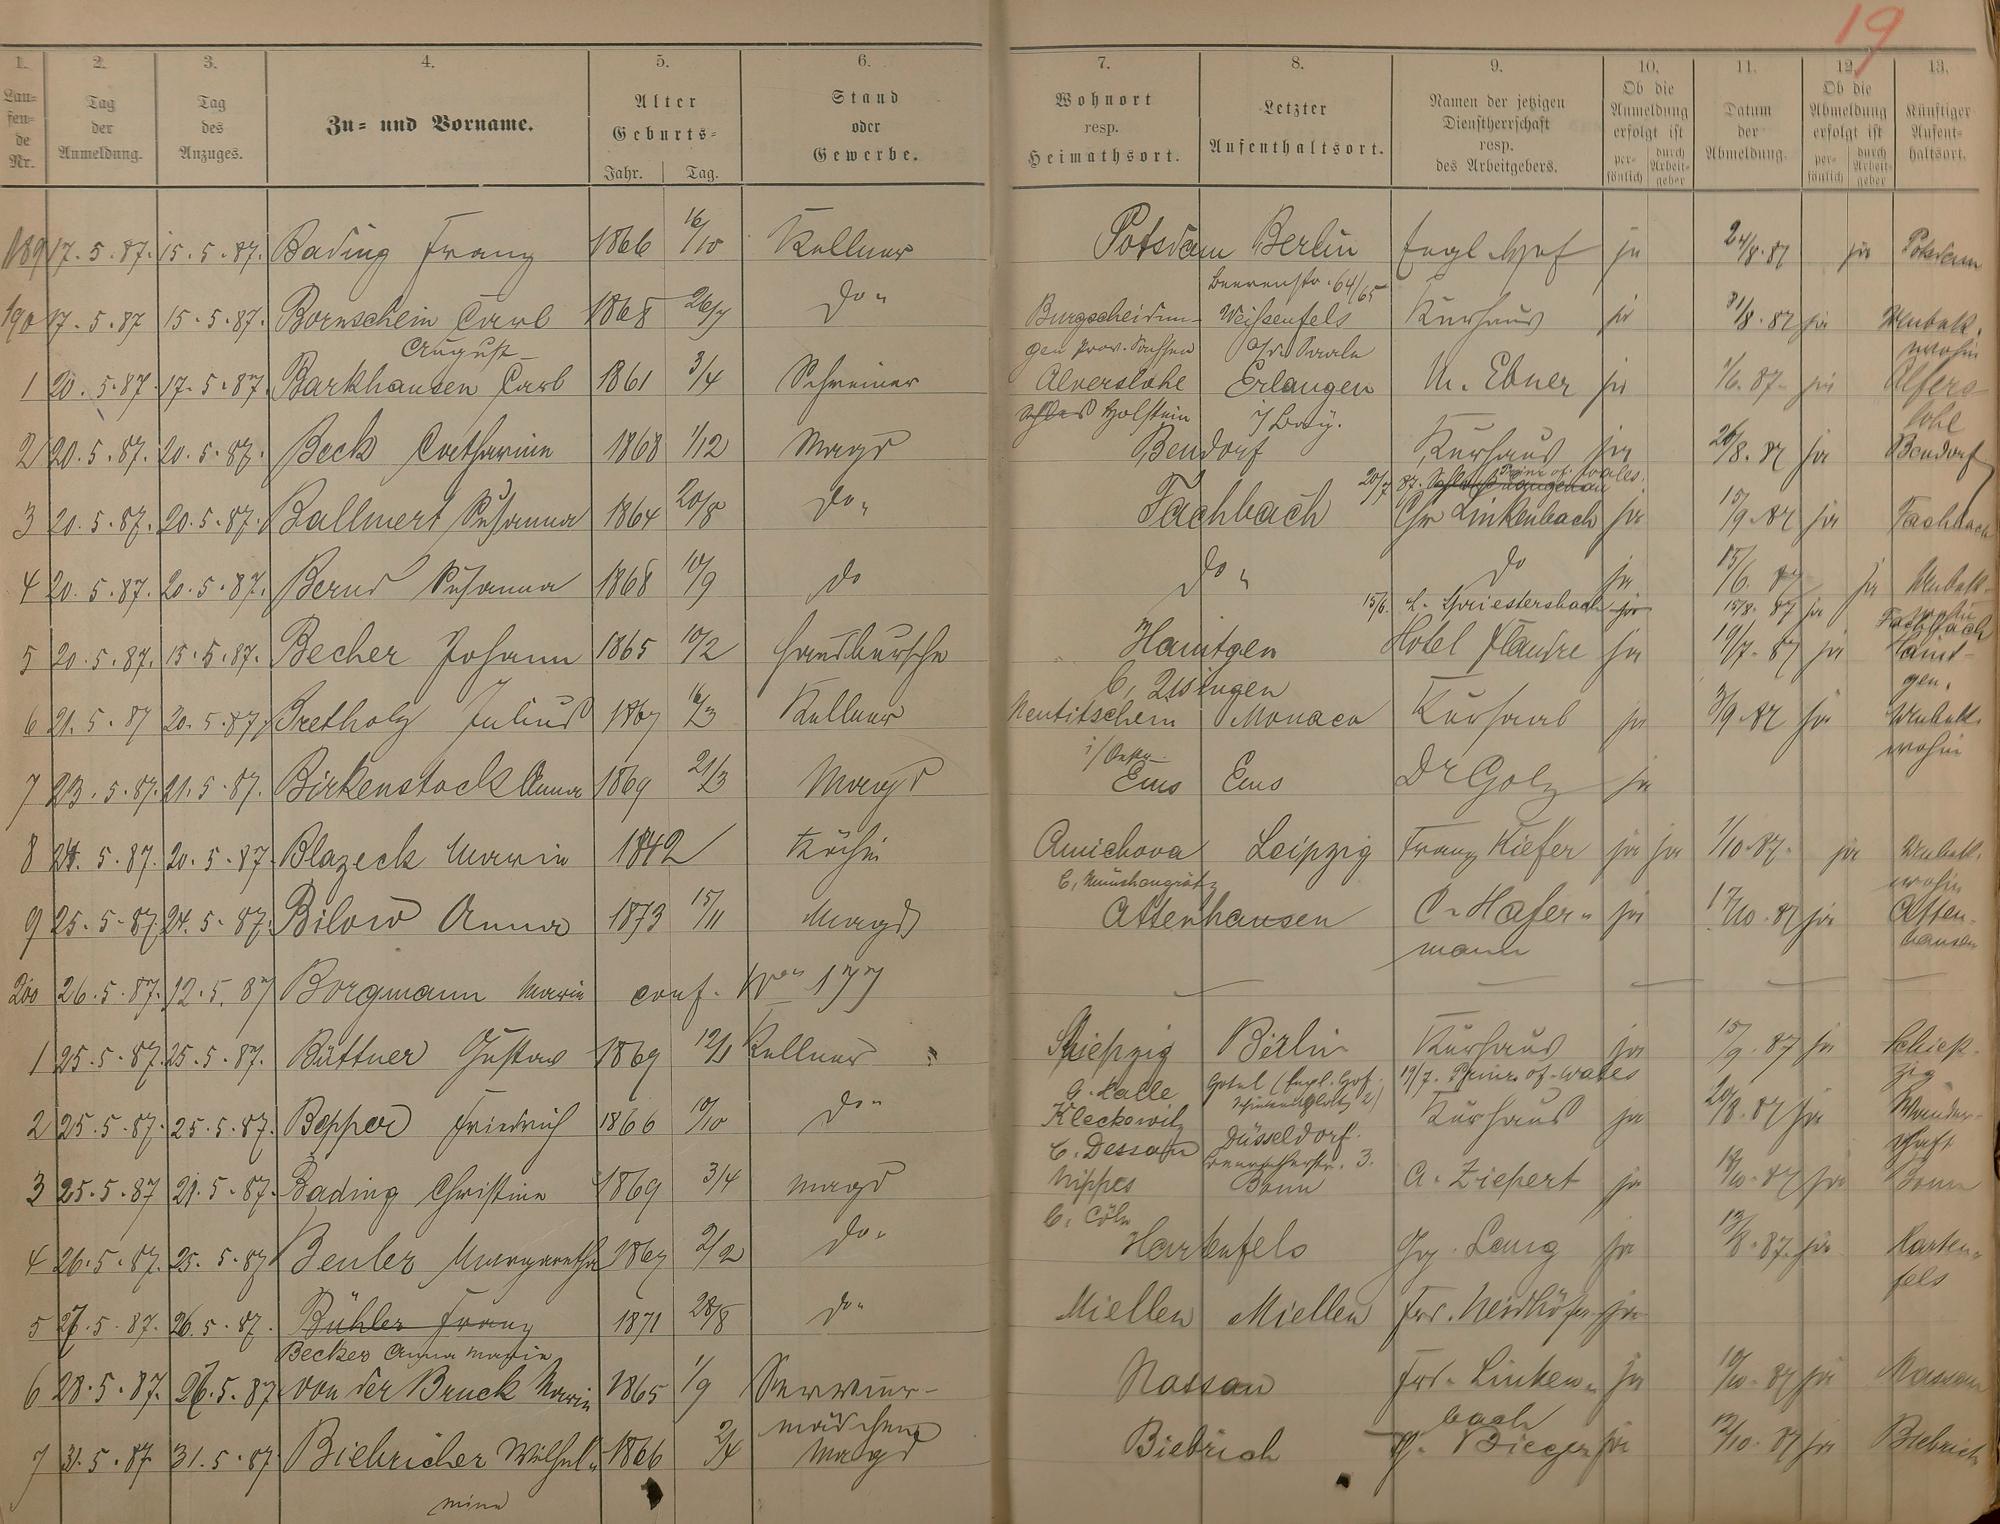 19
1. 2. 3. 4. 5. 6. 7. 8. 9. 10. 11. 12. 13.
Lau=fen=de Nr. Tag der Anmeldung. Tag des Anzuges. Zu= und Vorname. Alter Geburts= Jahr. Tag. Stand oder Gewerbe. Wohnort resp. Heimathsort. Letzter Aufenthaltsort. Namen der jetzigen Dienstherrschaft resp. des Arbeitgebers. Ob die Anmeldung erfolgt ist per=sönlich durch Arbeit=geber Datum der Abmeldung. Ob die Abmeldung erfolgt ist per=sönlich durch Arbeit=geber Künftiger Aufent=haltsort.
189 17.5.87. 15.5.87. Bading Franz 1866 16/10 Kellner Potsdam Berlin Engl. Hof ja 24/8.87 ja Potsdam
190 17.5.87 15.5.87. Bornschein Carl 1868 26/7 do" Burgscheidun- Weißenfels Kurhaus ja 31/8.87 ja Unbek.
August gen Prov. Sachsen a/d. Saale wohin
1 20.5.87. 17.5.87. Barkhausen Carl 1861 3/4 Schreiner Alverslohe Erlangen M. Ebner ja 1/6.87. ja Alfers-
Holstein i/Bay. lohe
2 20.5.87. 20.5.87. Beck Catharine 1868 1/12 Magd Bendorf Kurhaus ja 26/8.87 ja Bendorf
20/7 87. Prinz of Wales.
3 20.5.87. 20.5.87. Ballmert Susanna 1864 20/8 do" Fachbach Chr Linkenbach ja 15/9.87 ja Fachbach
4 20.5.87. 20.5.87. Bernd Susanna 1868 10/9 do do" do ja 15/6.87 ja Unbek.
15/6. L. Spriestersbach ja 15/8.87 ja Fachbach
5 20.5.87. 15.5.87. Becher Johann 1865 10/2 Hausbursche Haintgen Hotel Flandre ja 19/7.87 ja Haint-
C, Usingen gen.
6 21.5.87 20.5.87. Bretholz Julius 1867 16/3 Kellner Neutitschein Monaco Kursaal ja 3/9.87 ja Unbek.
wohin
7 23.5.87. 21.5.87. Birkenstock Anna 1869 21/3 Magd Ems Ems Dr Golz ja
8 24.5.87. 20.5.87. Blazeck Marie 1842 Köchin Amichova Leipzig Franz Kiefer ja ja 1/10.87. ja Unbek.
C, Münchengrätz wohin
9 25.5.87. 24.5.87. Bilow Anna 1873 15/11 Magd Attenhausen C. Hafer- ja 17/10.87 ja Atten-
mann hausen
200 26.5.87. 12.5.87 Borgmann Marie conf. Nro 177
1 25.5.87. 25.5.87. Büttner Gustav 1869 12/1 Kellner Berlin Kurhaus ja 15/9.87 ja
Hotel (Engl. Hof. 19/7. Prinz of Wales
2 25.5.87. 25.5.87. Bepper Friedrich 1866 10/10 do" Kleckewitz Düsseldorf. Kurhaus ja 20/8.87 ja Wander-
C. Dessau 3. schaft
3 25.5.87 21.5.87. Bading Christine 1869 3/4 Magd Nippes Bonn A. Ziepert ja 18/10.87 ja Bonn
C, Cöln
4 26.5.87. 25.5.87 Beuler Margaretha 1867 2/2 do" Hartenfels Gg. Lang ja 12/8.87. ja Harten-
fels
5 27.5.87. 26.5.87. Bühler Franz 1871 28/8 do" Miellen Miellen Frd. Neidhöfer ja
Becker Anna Marie
6 28.5.87. 26.5.87 von der Bruck Marie 1865 1/9 Servier- Nassau Frd. Linken- ja 10/10.87 ja Nassau
mädchen bach
7 31.5.87 31.5.87 Biebricher Wilhel- 1866 2/4 Magd Biebrich Bieger ja 12/10.87 ja Biebrich
mine